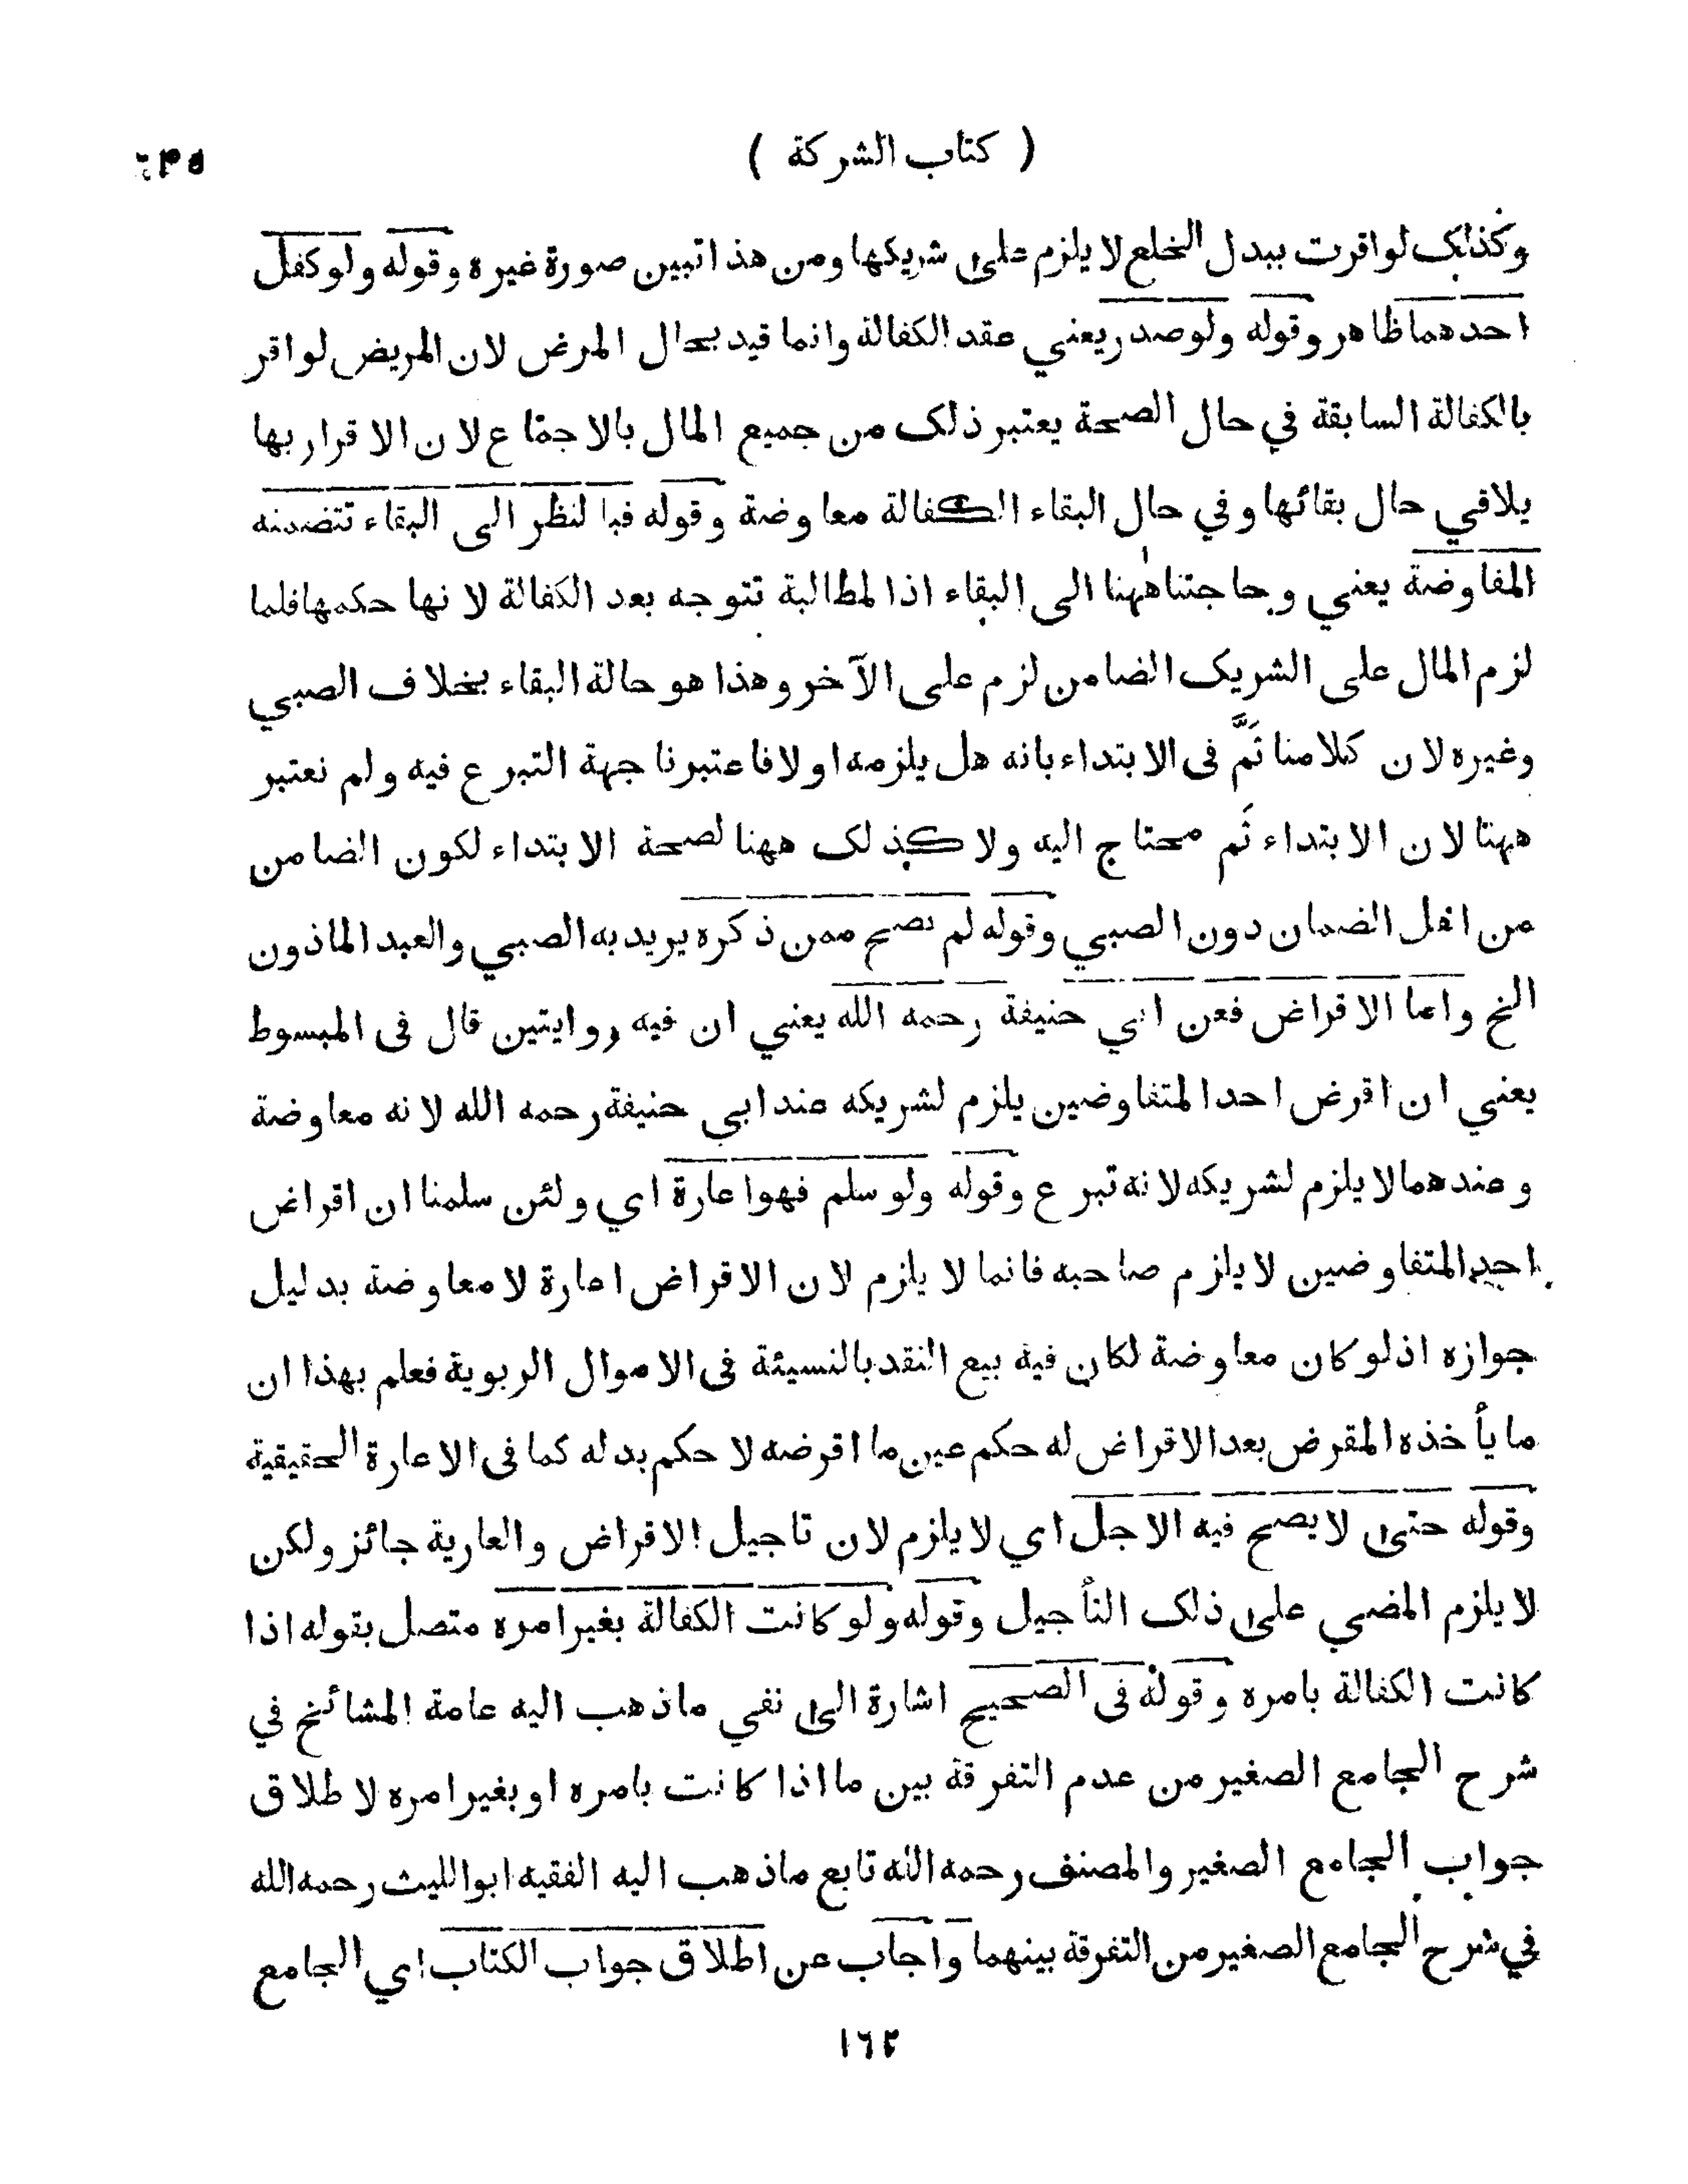 ( كتاب الشركة )
وكذلك لو اقرت ببدل الخلع لا يلزم على شريكها ومن هذا تبين صورة غيره وقوله ولو كفل
احدهما ظاهر وقوله ولو صدر يعني عقد الكفالة وانما قيد بحال المرض لان المريض لو اقر
بالكفالة السابقة في حال الصحة يعتبر ذلك من جميع المال بالاجماع لان الاقرار بها
يلاقي حال بقائها وفي حال البقاء الكفالة معاوضة وقوله فبالنظر الى البقاء تتضمنه
المفاوضة يعني وحاجتنا ههنا الى البقاء اذ المطالبة تتوجه بعد الكفالة لانها حكمها فلما
لزم المال على الشريك الضامن لزم على الآخر وهذا هو حالة البقاء بخلاف الصبي
وغيره لان كلامنا ثَمَّ في الابتداء بانه هل يلزمه او لا فاعتبرنا جهة التبرع فيه ولم نعتبر
ههنا لان الابتداء ثَم محتاج اليه ولا كذلك ههنا لصحة الابتداء لكون الضامن
من اهل الضمان دون الصبي وقوله لم تصح ممن ذكره يريد به الصبي والعبد الماذون
الخ واما الاقراض فعن ابي حنيفة رحمه الله يعني ان فيه روايتين قال في المبسوط
يعني ان اقرض احد المتفاوضين يلزم لشريكه عند ابي حنيفة رحمه الله لانه معاوضة
وعندهما لا يلزم لشريكه لانه تبرع وقوله ولو سلم فهو اعارة اي ولئن سلمنا ان اقراض
احد المتفاوضين لا يلزم صاحبه فانما لا يلزم لان الاقراض اعارة لا معاوضة بدليل
جوازه اذ لو كان معاوضة لكان فيه بيع النقد بالنسيئة في الاموال الربوية فعلم بهذا ان
ما يأخذه المقرض بعد الاقراض له حكم عين ما اقرضه لا حكم بدله كما في الاعارة الحقيقية
وقوله حتى لا يصح فيه الاجل اي لا يلزم لان تاجيل الاقراض والعارية جائز ولكن
لا يلزم المضي على ذلك التأجيل وقوله ولو كانت الكفالة بغير امره متصل بقوله اذا
كانت الكفالة بامره وقوله في الصحيح اشارة الى نفي ما ذهب اليه عامة المشائخ في
شرح الجامع الصغير من عدم التفرقة بين ما اذا كانت بامره او بغير امره لاطلاق
جواب الجامع الصغير والمصنف رحمه الله تابع ما ذهب اليه الفقيه ابو الليث رحمه الله
في شرح الجامع الصغير من التفرقة بينهما واجاب عن اطلاق جواب الكتاب اي الجامع
١٦٢